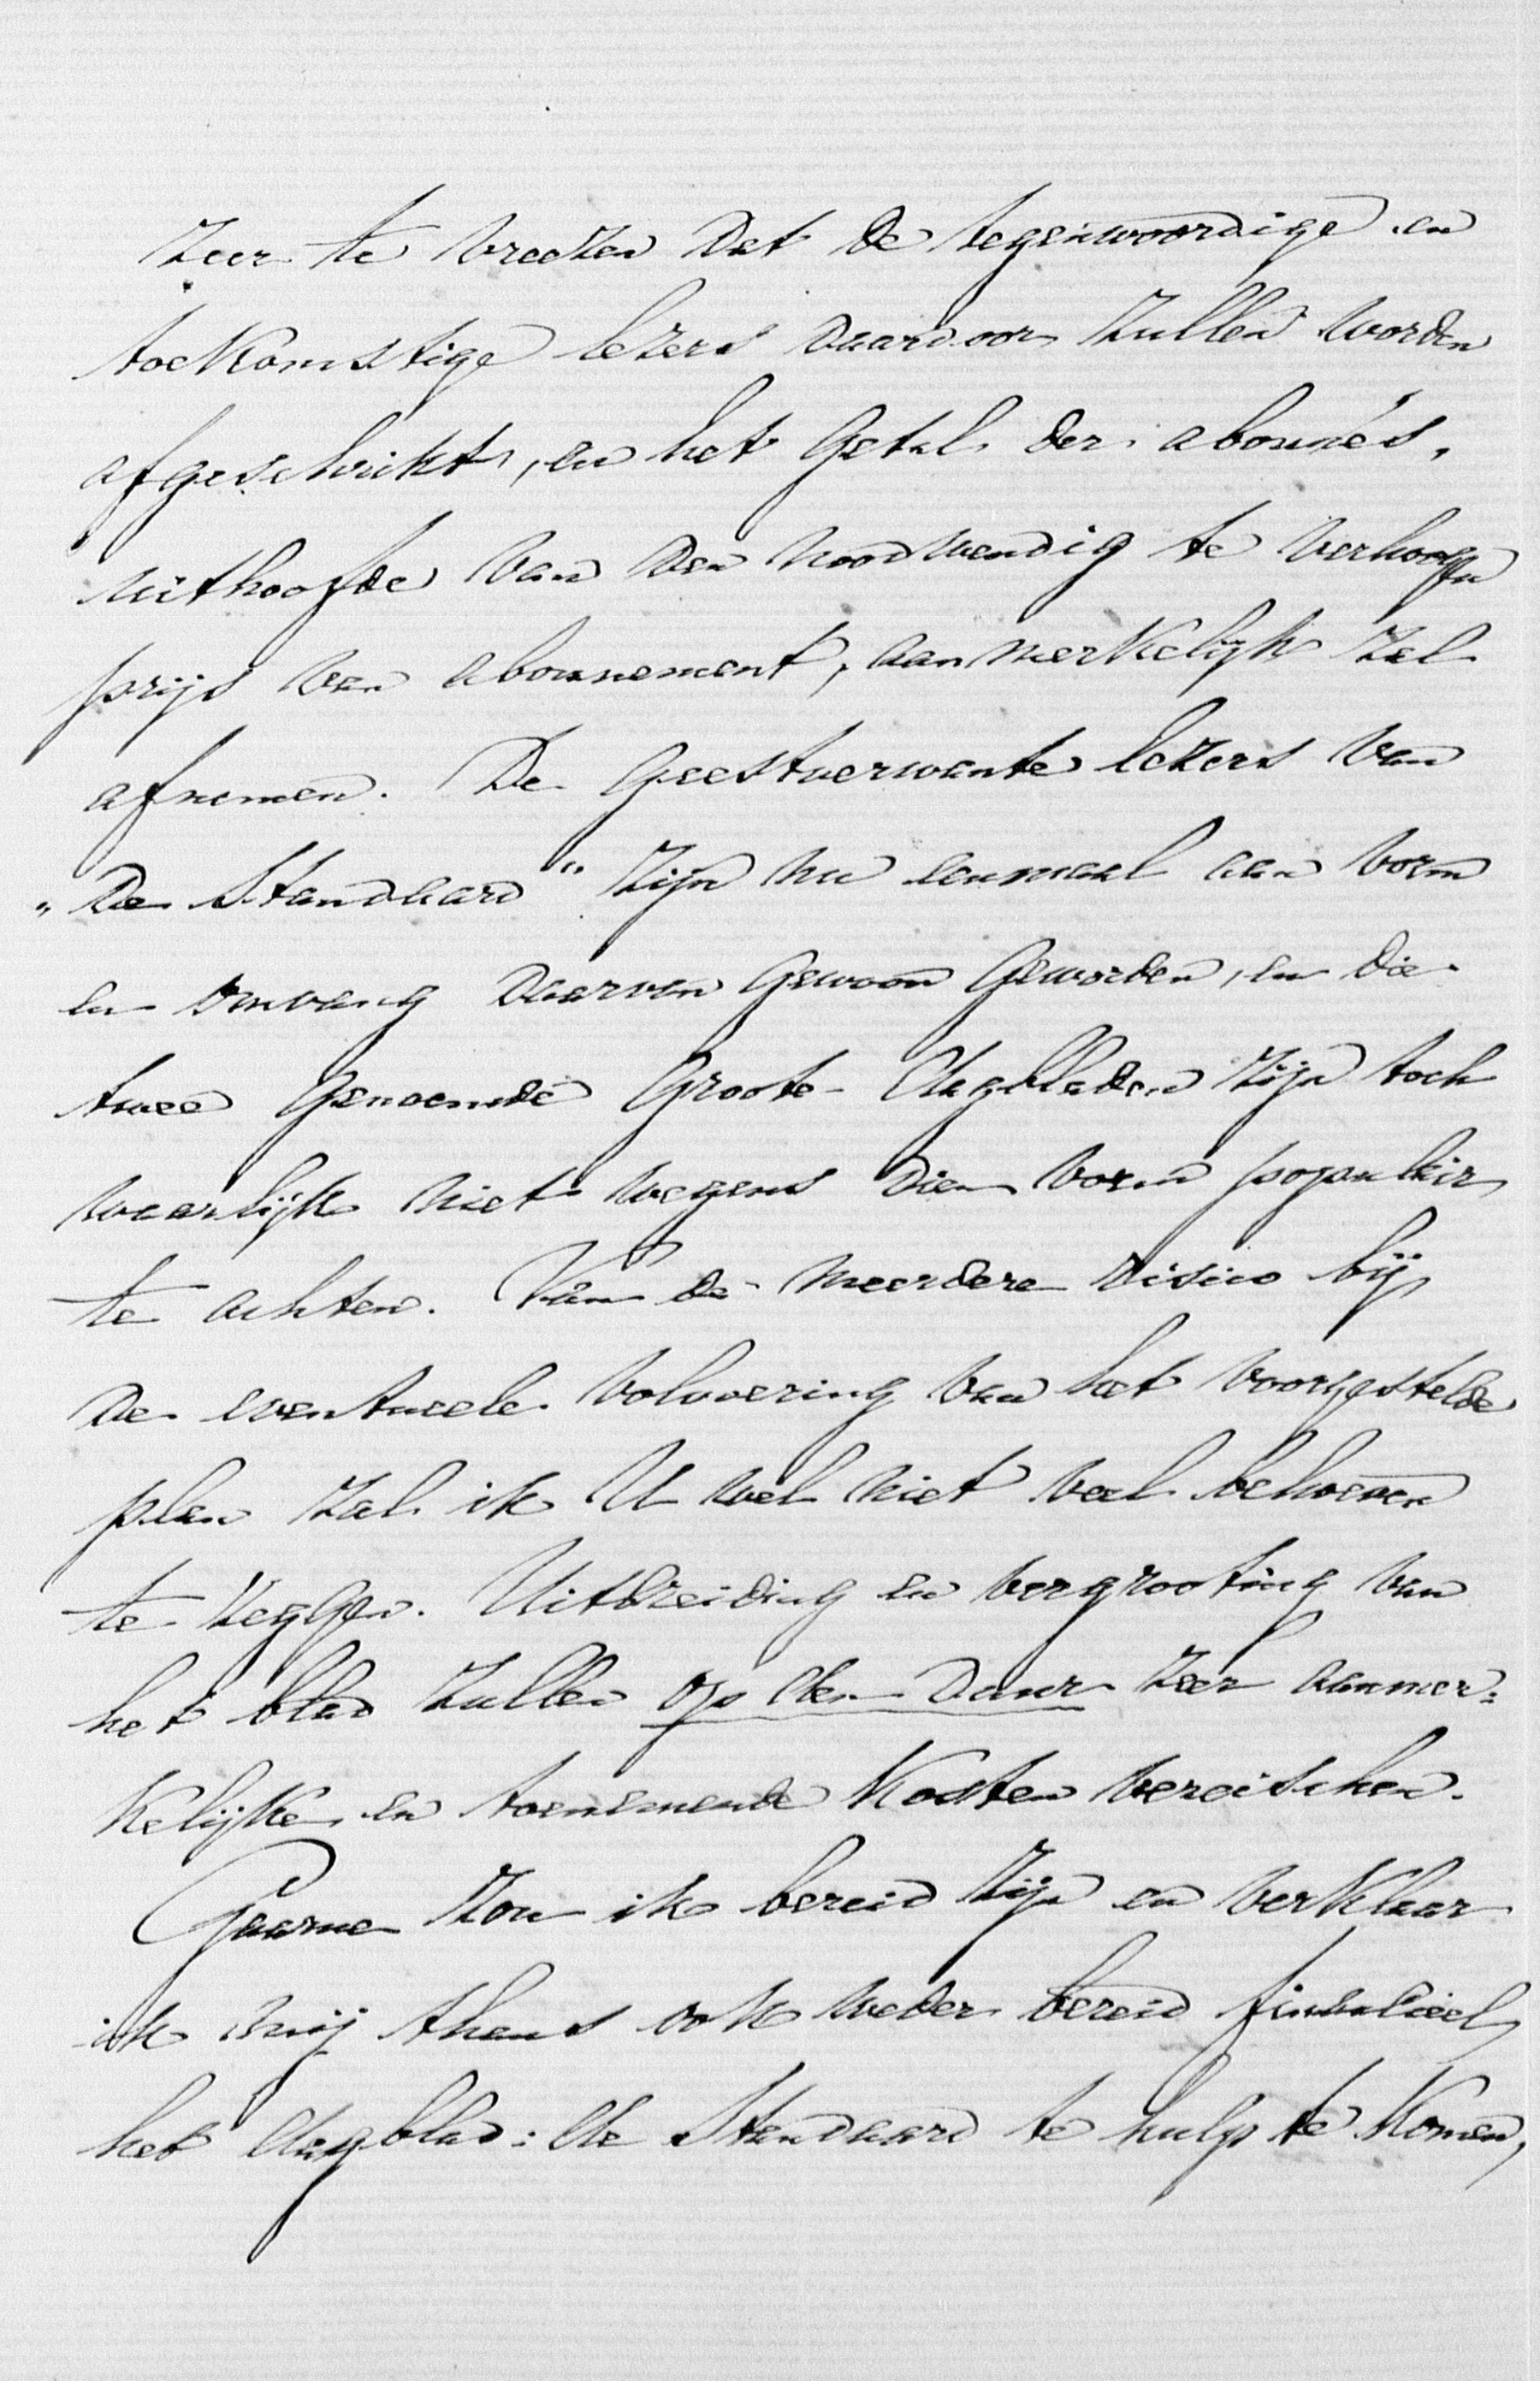 zeer te vreezen dat de tegenwoordige en
toekomstige lezers daardoor zullen worden
afgeschrikt, en het getal der abonnés,
uithoofde van den noodwendig te verhoogen
prijs van abonnement, aanmerkelijk zal
afnemen. De geestverwante lezers van
„De Standaard” zijn nu eenmaal aan vorm
en omvang daarvan gewoon geworden, en die
twee genoemde groote dagbladen zijn toch
waarlijk niet wegens dien vorm populair
te achten. Van de meerdere risico bij
de eventueele volvoering van het voorgestelde
plan zal ik U wel niet veel behoeven
te zeggen. Uitbreiding en vergrooting van
het blad zullen op den duur zeer aanmer=
kelijke en toenemende kosten vereischen.
Gaarne zou ik bereid zijn en verklaar
ik mij thans ook weder bereid finantieel
het dagblad: de Standaard te hulp te komen,